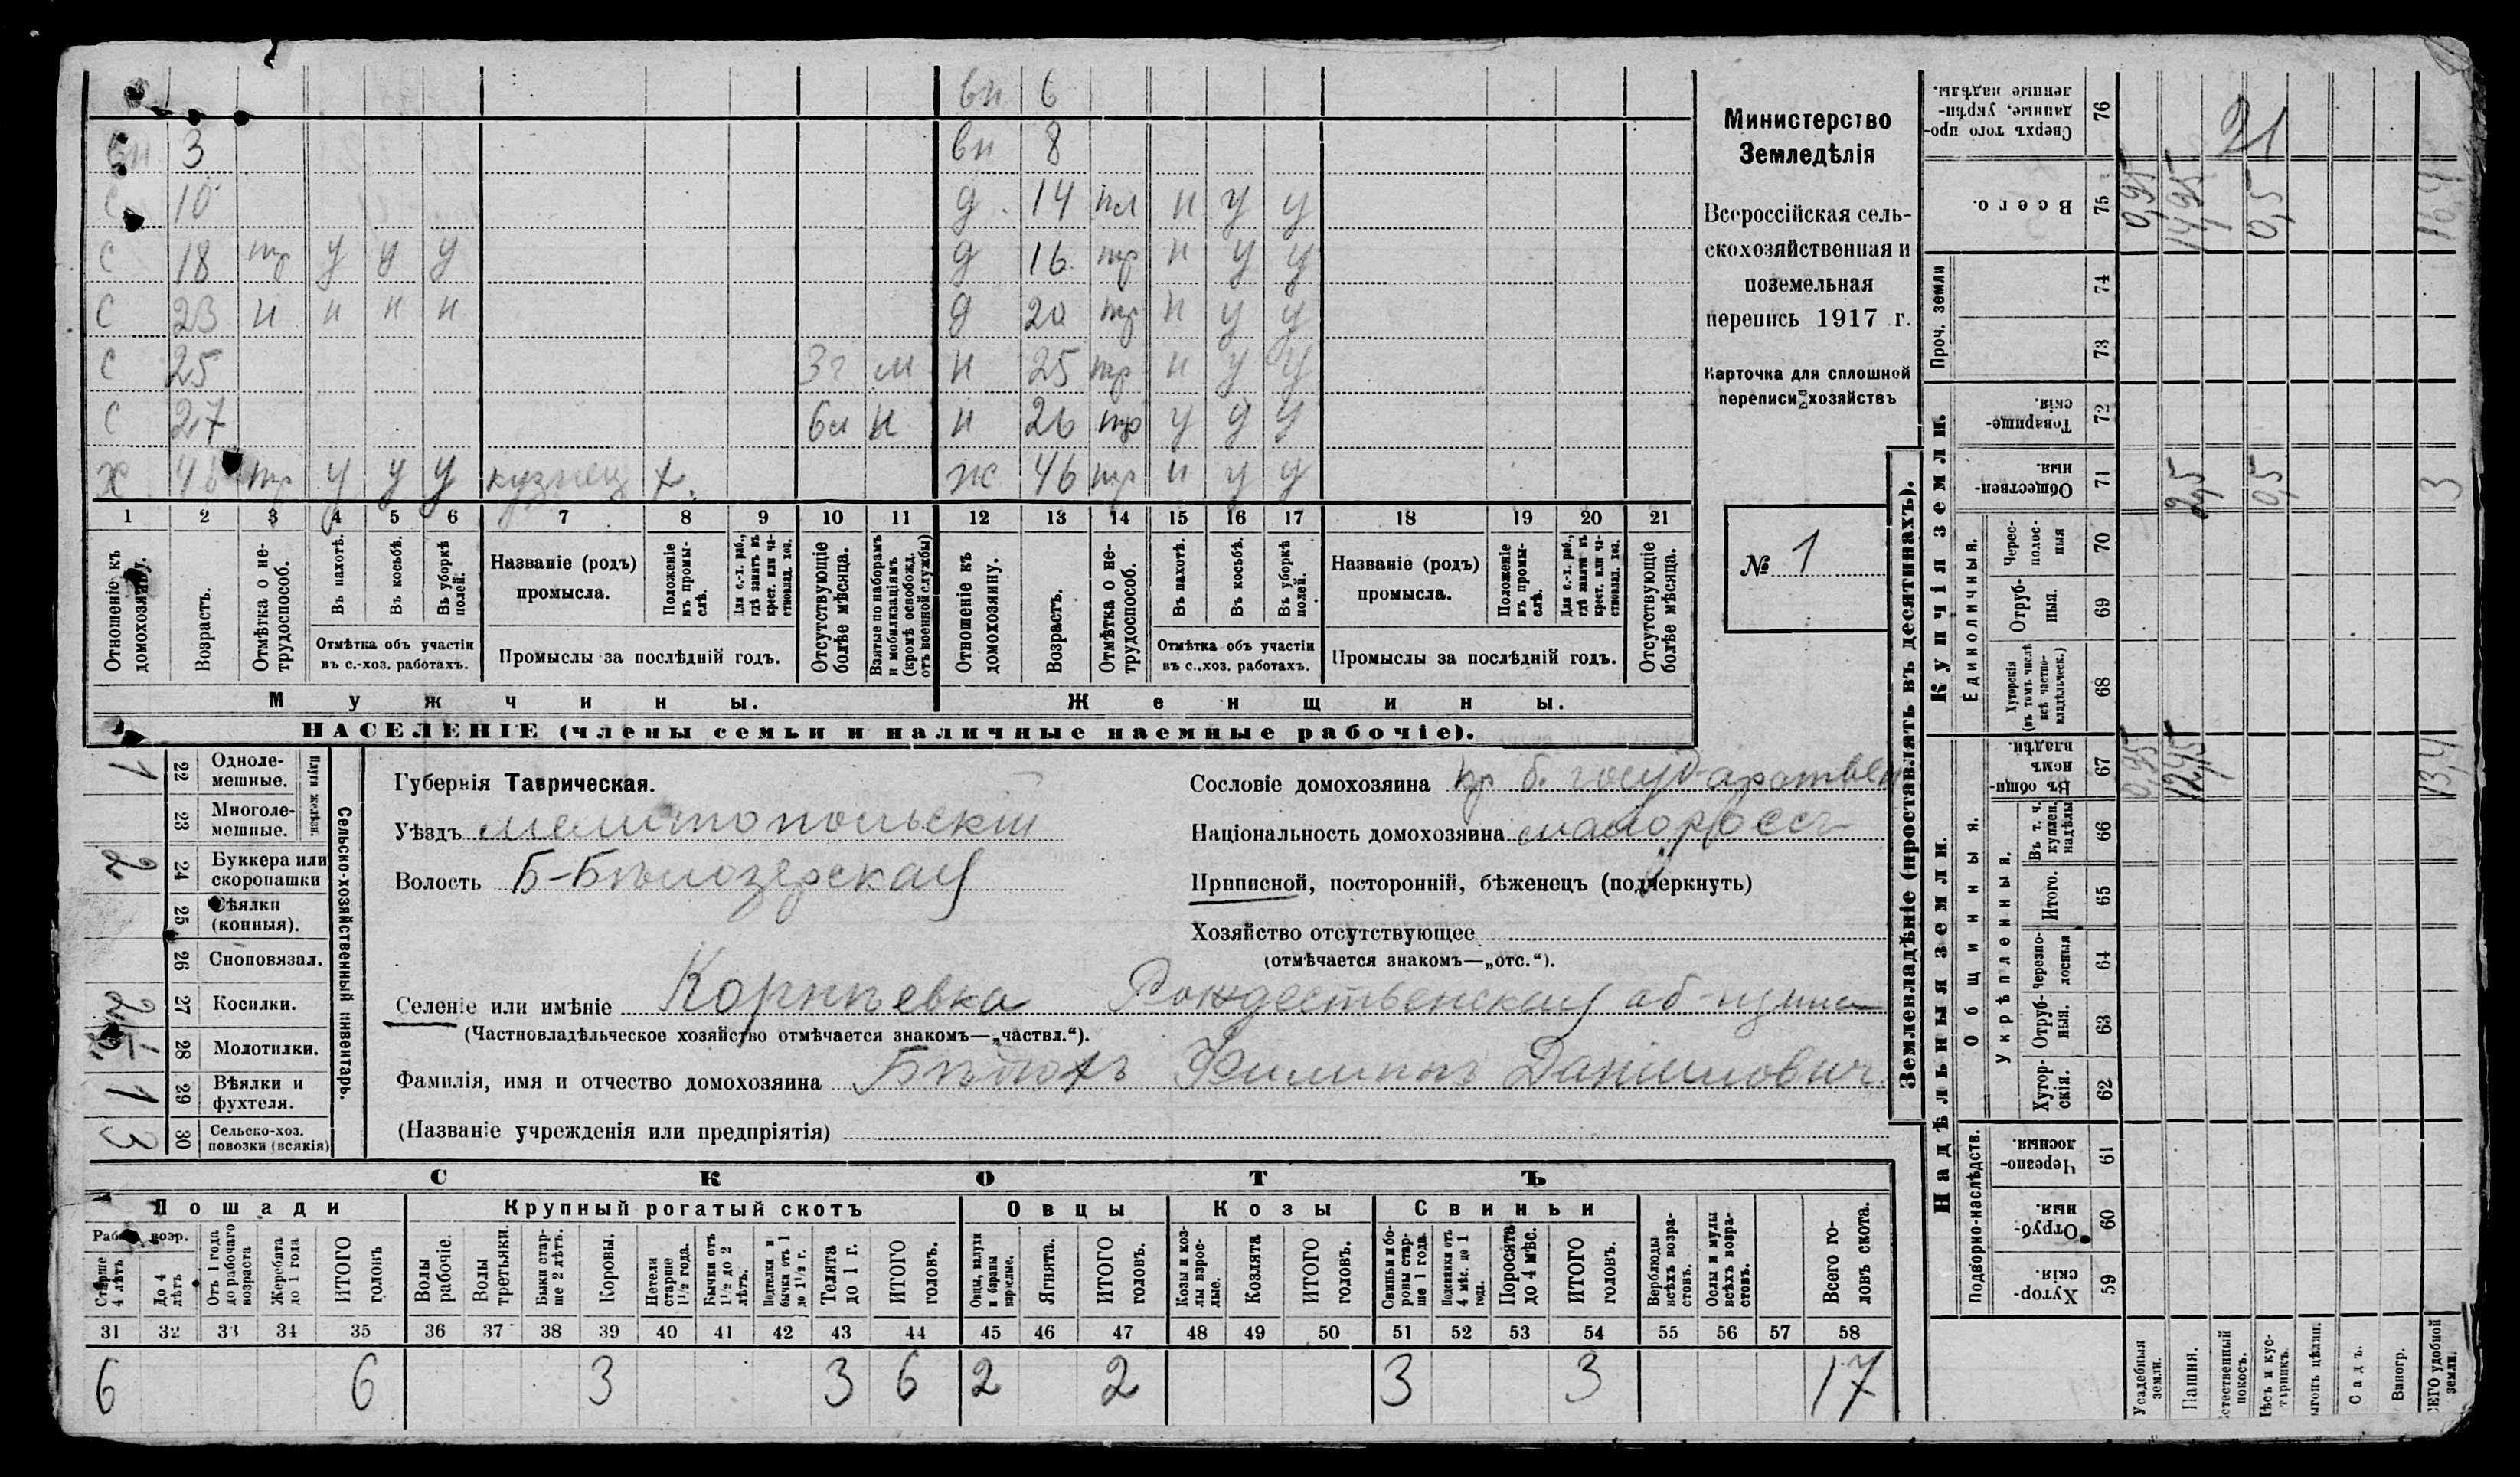 вн 6
вн 3 вн 8
с 10 д 14 пл н у у
с 18 тр у у у д 16 тр н у у
с 23 н н н н д 20 тр н у у
с 25 3г м н 25 тр н у у
с 27 6л н н 26 тр у у у
х 46 тр у у у кузнец х. ж 46 тр н у у
1 2 3 4 5 6 7 8 9 10 11 12 13 14 15 16 17 18 19 20 21
Отношеніе къ домохозяину.
Возрастъ.
Отмѣтка о нетрудоспособ.
Въ пахотѣ.
Въ косьбѣ.
Въ уборкѣ полей.
Отмѣтка объ участіи
въ с.-хоз. работахъ.
Названіе (родъ)
промысла.
Положеніе въ промыслѣ.
Для с.-х. раб., гдѣ занятъ въ крест. или частновлад. хоз.
Промыслы за послѣдній годъ.
Отсутствующіе болѣе мѣсяца.
Взятые по наборамъ и мобилизаціямъ (кромѣ освобожд. отъ военной службы)
Отношеніе къ домохозяину.
Возрастъ.
Отмѣтка о нетрудоспособ.
Въ пахотѣ.
Въ косьбѣ.
Въ уборкѣ полей.
Отмѣтка объ участіи
въ с..хоз. работахъ.
Названіе (родъ)
промысла.
Положеніе въ промыслѣ.
Для с.-х. раб., гдѣ занята въ крест. или частновлад. хоз.
Промыслы за послѣдній годъ.
Отсутствующіе болѣе мѣсяца.
Мужчины. Женщины.
НАСЕЛЕНІЕ (члены семьи и наличные наемные рабочіе).
Министерство
Земледѣлія
Всероссійская сель-
скохозяйственная и
поземельная
перепись 1917 г.
Карточка для сплошной
переписи хозяйствъ
№ 1
1 22 Однолемешные.
23 Многолемешные.
Плуги желѣзн.
2 24 Буккера или скоропашки
25 Сѣялки (конныя).
26 Сноповязал.
27 Косилки.
28 Молотилки.
1 29 Вѣялки и фухтеля.
3 30 Сельско-хоз. повозки (всякія)
Сельско-хозяйственный инвентарь.
Губернія Таврическая.
Уѣздъ мелитопольскій
Волость Б-Бѣлозерская
Селеніе или имѣніе Корнѣевка Рождественская об-щина
(Частновладѣльческое хозяйство отмѣчается знакомъ—„частвл.“).
Фамилія, имя и отчество домохозяина Филиппъ Даниловичъ
(Названіе учрежденія или предпріятія)
Сословіе домохозяина кр б. государствен
Національность домохозяина малороссъ
Приписной, посторонній, бѣженецъ (подчеркнуть)
Хозяйство отсутствующее
(отмѣчается знакомъ—„отс.“).
СКОТЪ
Лошади Крупный рогатый скотъ Овцы Козы Свиньи
Рабоч. возр.
Старше 4 лѣтъ
До 4 лѣтъ
Отъ 1 года до рабочаго возраста
Жеребята до 1 года
ИТОГО головъ
Волы рабочіе.
Волы третьяки.
Быки старше 2 лѣтъ.
Коровы.
Нетели старше 1½ года.
Бычки отъ 1½ до 2 лѣтъ.
Подтелки и бычки отъ 1 до 1½ г.
Телята до 1 г.
ИТОГО головъ.
Овцы, валухи и бараны взрослые.
Ягнята.
ИТОГО головъ.
Козы и козлы взрослые.
Козлята
ИТОГО головъ.
Свиньи и боровы старше 1 года.
Подсвинки отъ 4 мѣс. до 1 года.
Поросята до 4 мѣс.
ИТОГО головъ.
Верблюды всѣхъ возрастовъ.
Ослы и мулы всѣхъ возрастовъ.
Всего головъ скота.
31 32 33 34 35 36 37 38 39 40 41 42 43 44 45 46 47 48 49 50 51 52 53 54 55 56 57 58
6 6 3 3 6 2 2 3 3 17
Землевладѣніе (проставлять въ десятинахъ).
Надѣльныя земли. Купчія земли. Проч. земли
Подворно-наслѣдств. Общинныя. Единоличныя.
Укрѣпленныя.
Хуторскія. 59
Отрубныя. 60
Черезполосныя. 61
Хуторскія. 62
Отрубныя. 63
Черезполосныя 64
Итого. 65
Въ т. ч. куплен. надѣлы 66
Въ общинномъ владѣн. 67
Хуторскія (въ томъ числѣ всѣ частновладѣльческ.) 68
Отрубныя. 69
Чересполосныя 70
Общественныя. 71
Товарищескія. 72
73
74
Всего. 75
Сверхъ того проданные, укрѣпленные надѣлы. 76
Усадебныя земли. 0,95 0,95
Пашня. 12,45 2,5 14,95
Естественный покосъ.
Лѣсъ и кустарникъ. 0,5 0,5
Выгонъ цѣлин.
Садъ.
Виногр.
ВСЕГО удобной земли. 13,4 3 16,4
21